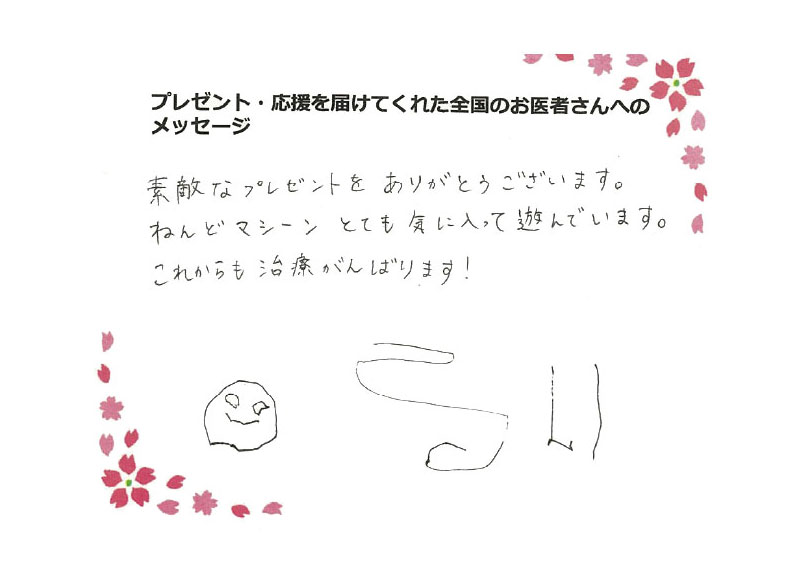 プレゼント・応援を届けてくれた全国のお医者さんへの
メッセージ
素敵なプレゼントを ありがとうございます。
ねんどマシーン とても 気に入って 遊んでいます。
これからも 治療がんばります！